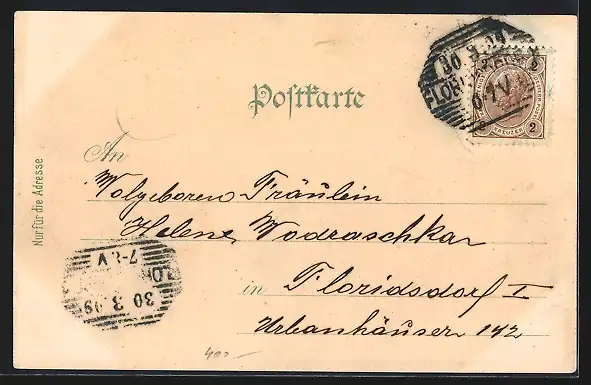 Postkarte
30 3 99
2
KREUZER
2 2
An
Wolgeboren Fräulein
Helene Wodraschkar
in Floridsdorf I
Urbanhäuser 142
Nur für die Adresse
7-8.V
30 3 99
400 -